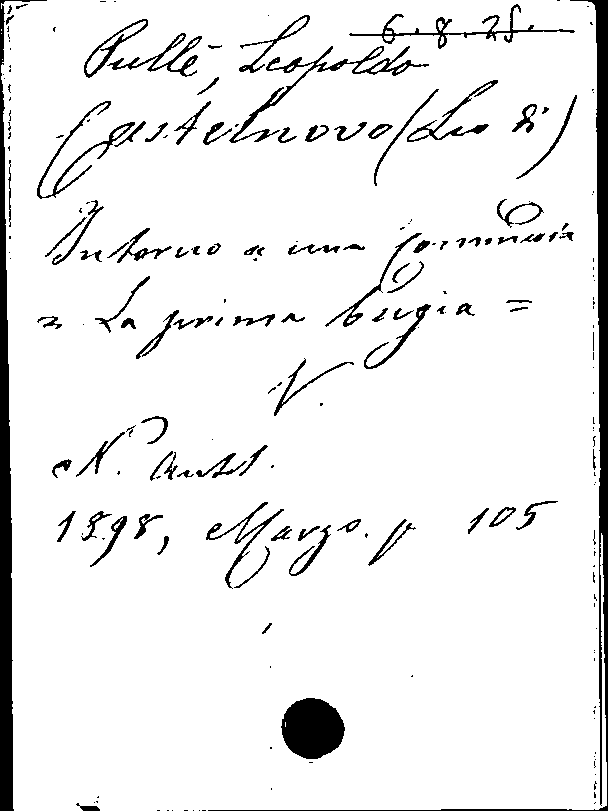 6.8.25.
Pullè, Leopoldo
Castelnovo (Leo di)
Intorno a una Commedia
= La prima bugia =
V.
N. Antol.
1898, Marzo. p 105